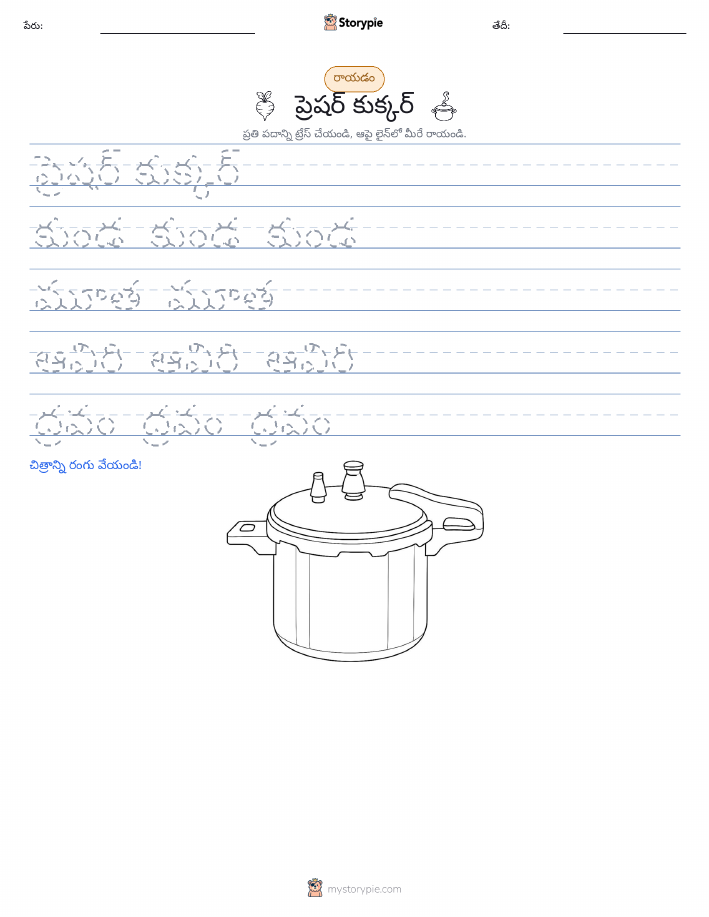 పేరు:
Storypie
తేదీ:
రాయడం
ప్రెషర్ కుక్కర్
ప్రతి పదాన్ని ట్రేస్ చేయండి, ఆపై లైన్‌లో మీరే రాయండి.
ప్రెషర్ కుక్కర్
కుండ కుండ కుండ
మూత మూత
ఆవిరి ఆవిరి ఆవిరి
ద్రవం ద్రవం ద్రవం
చిత్రాన్ని రంగు వేయండి!
mystorypie.com